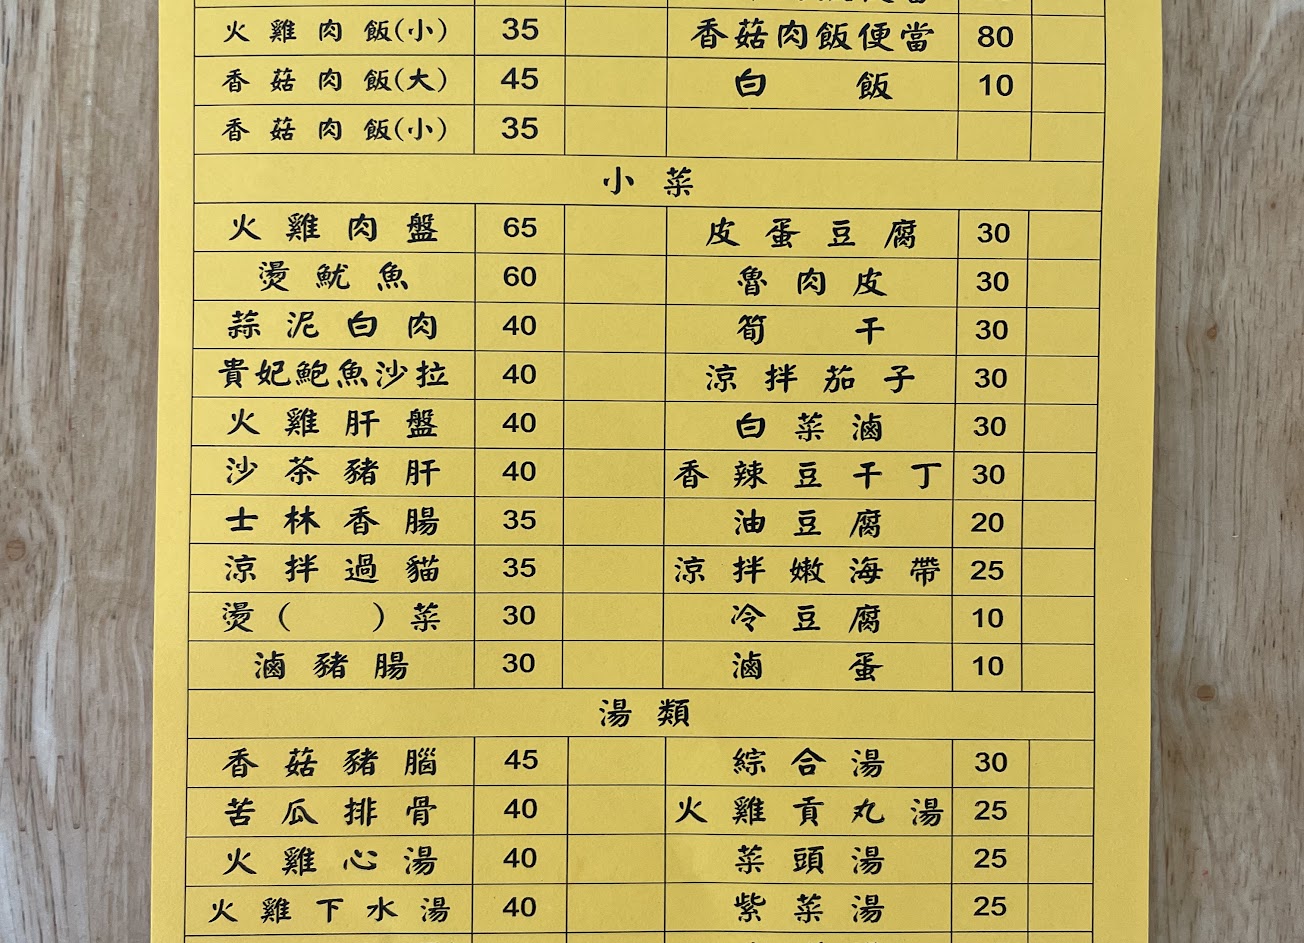 火雞肉飯(小) 35 香菇肉飯便當 80
香菇肉飯(大) 45 白飯 10
香菇肉飯(小) 35
小菜
火雞肉盤 65 皮蛋豆腐 30
燙魷魚 60 魯肉皮 30
蒜泥白肉 40 筍干 30
貴妃鮑魚沙拉 40 涼拌茄子 30
火雞肝盤 40 白菜滷 30
沙茶豬肝 40 香辣豆干丁 30
士林香腸 35 油豆腐 20
涼拌過貓 35 涼拌嫩海帶 25
燙( )菜 30 冷豆腐 10
滷豬腸 30 滷蛋 10
湯類
香菇豬腦 45 綜合湯 30
苦瓜排骨 40 火雞貢丸湯 25
火雞心湯 40 菜頭湯 25
火雞下水湯 40 紫菜湯 25